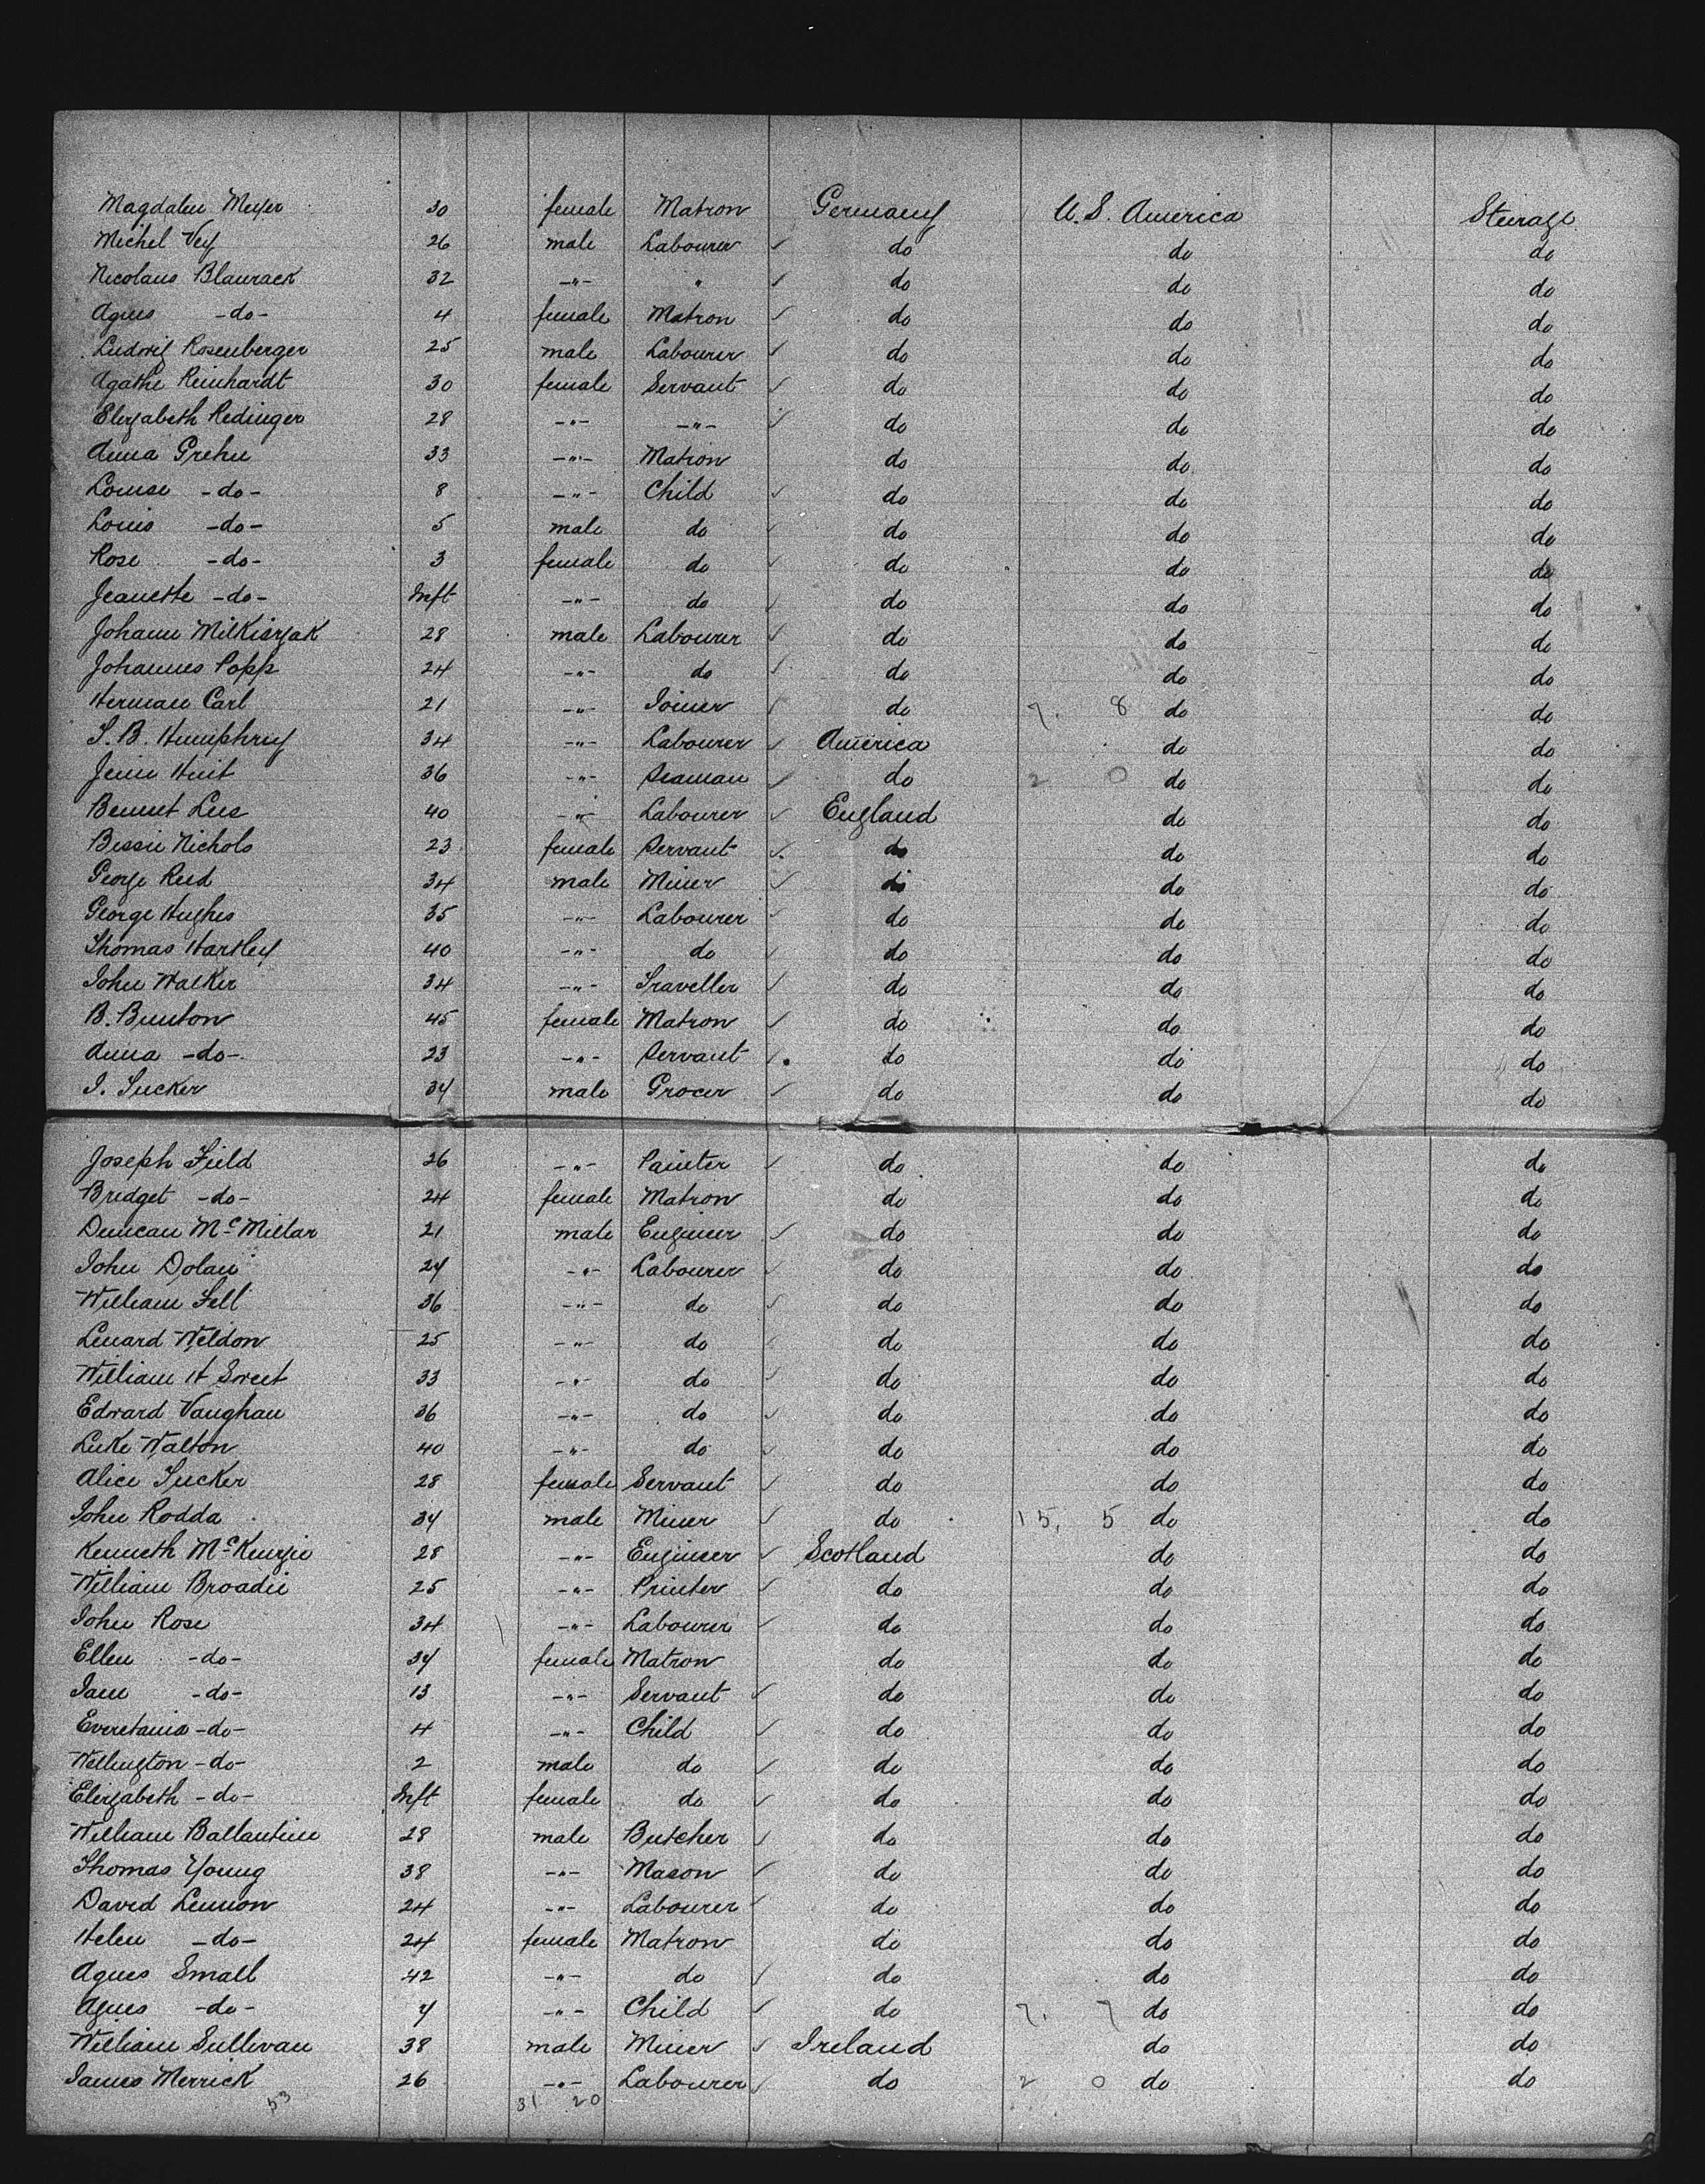 Magdalen Meyer 30 female Matron Germany U.S. America Sturage
Michel Vey 26 male Labourer ✓ do do do
Nicolaus Blaurack 32 -"- " ✓ do do do
Agnes -do- 4 female Matron ✓ do do do
Ludwig Rosenberger 25 male Labourer ✓ do do do
Agathe Reinhardt 30 female Servant ✓ do do do
Elizabeth Redinger 28 -"- -"- ✓ do do do
Anna Grehn 33 -"- Matron do do do
Louise -do- 8 -"- Child ✓ do do do
Louis -do- 5 male do ✓ do do do
Rose -do- 3 female do ✓ do do do
Jeanette -do- Inft -"- do ✓ do do do
Johann Milkisyak 28 male Labourer ✓ do do do
Johannes Popp 24 -"- do ✓ do do do
Herman Carl 21 -"- Joiner ✓ do 7. 8 do do
S.B. Humphrey 34 -"- Labourer ✓ America do do
36 -"- Seaman ✓ do 2 0 do do
Bennet Lee 40 -"- Labourer ✓ England do do
Bessie Nichols 23 female Servant ✓ do do do
George Reed 34 male Miner ✓ do do do
George Hughes 35 -"- Labourer ✓ do do do
Thomas Hartley 40 -"- do ✓ do do do
John Walker 34 -"- Traveller ✓ do do do
B. Bunton 45 female Matron ✓ do do do
Anna -do- 23 -"- Servant ✓ do do do
J. Tucker 34 male Grocer ✓ do do do
Joseph Field 26 -"- Painter ✓ do do do
Bridget -do- 24 female Matron do do do
Duncan McMillar 21 male Engineer ✓ do do do
John Dolan 24 -"- Labourer ✓ do do do
William Fell 36 -"- do ✓ do do do
Lenard Weldon 25 -"- do ✓ do do do
William H Sweet 33 -"- do ✓ do do do
Edward Vaughan 36 -"- do ✓ do do do
Luke Walton 40 -"- do ✓ do do do
Alice Tucker 28 female Servant ✓ do do do
John Rodda 34 male Miner ✓ do 15. 5 do do
Kenneth McKenzie 28 -"- Engineer ✓ Scotland do do
William Broadie 25 -"- Printer ✓ do do do
John Rose 34 -"- Labourer ✓ do do do
Ellen -do- 34 female Matron do do do
Jane -do- 13 -"- Servant ✓ do do do
Everetania -do- 4 -"- Child ✓ do do do
Wellington -do- 2 male do ✓ do do do
Elizabeth -do- Inft female do ✓ do do do
William Ballantine 28 male Butcher ✓ do do do
Thomas Young 38 -"- Mason ✓ do do do
David Lennon 24 -"- Labourer ✓ do do do
Helen -do- 24 female Matron do do do
Agnes Small 42 -"- do ✓ do do do
Agnes -do- 4 -"- Child ✓ do 7. 7 do do
William Sullivan 38 male Miner ✓ Ireland do do
James Merrick 26 -"- Labourer ✓ do 2 0 do do
53 31 20